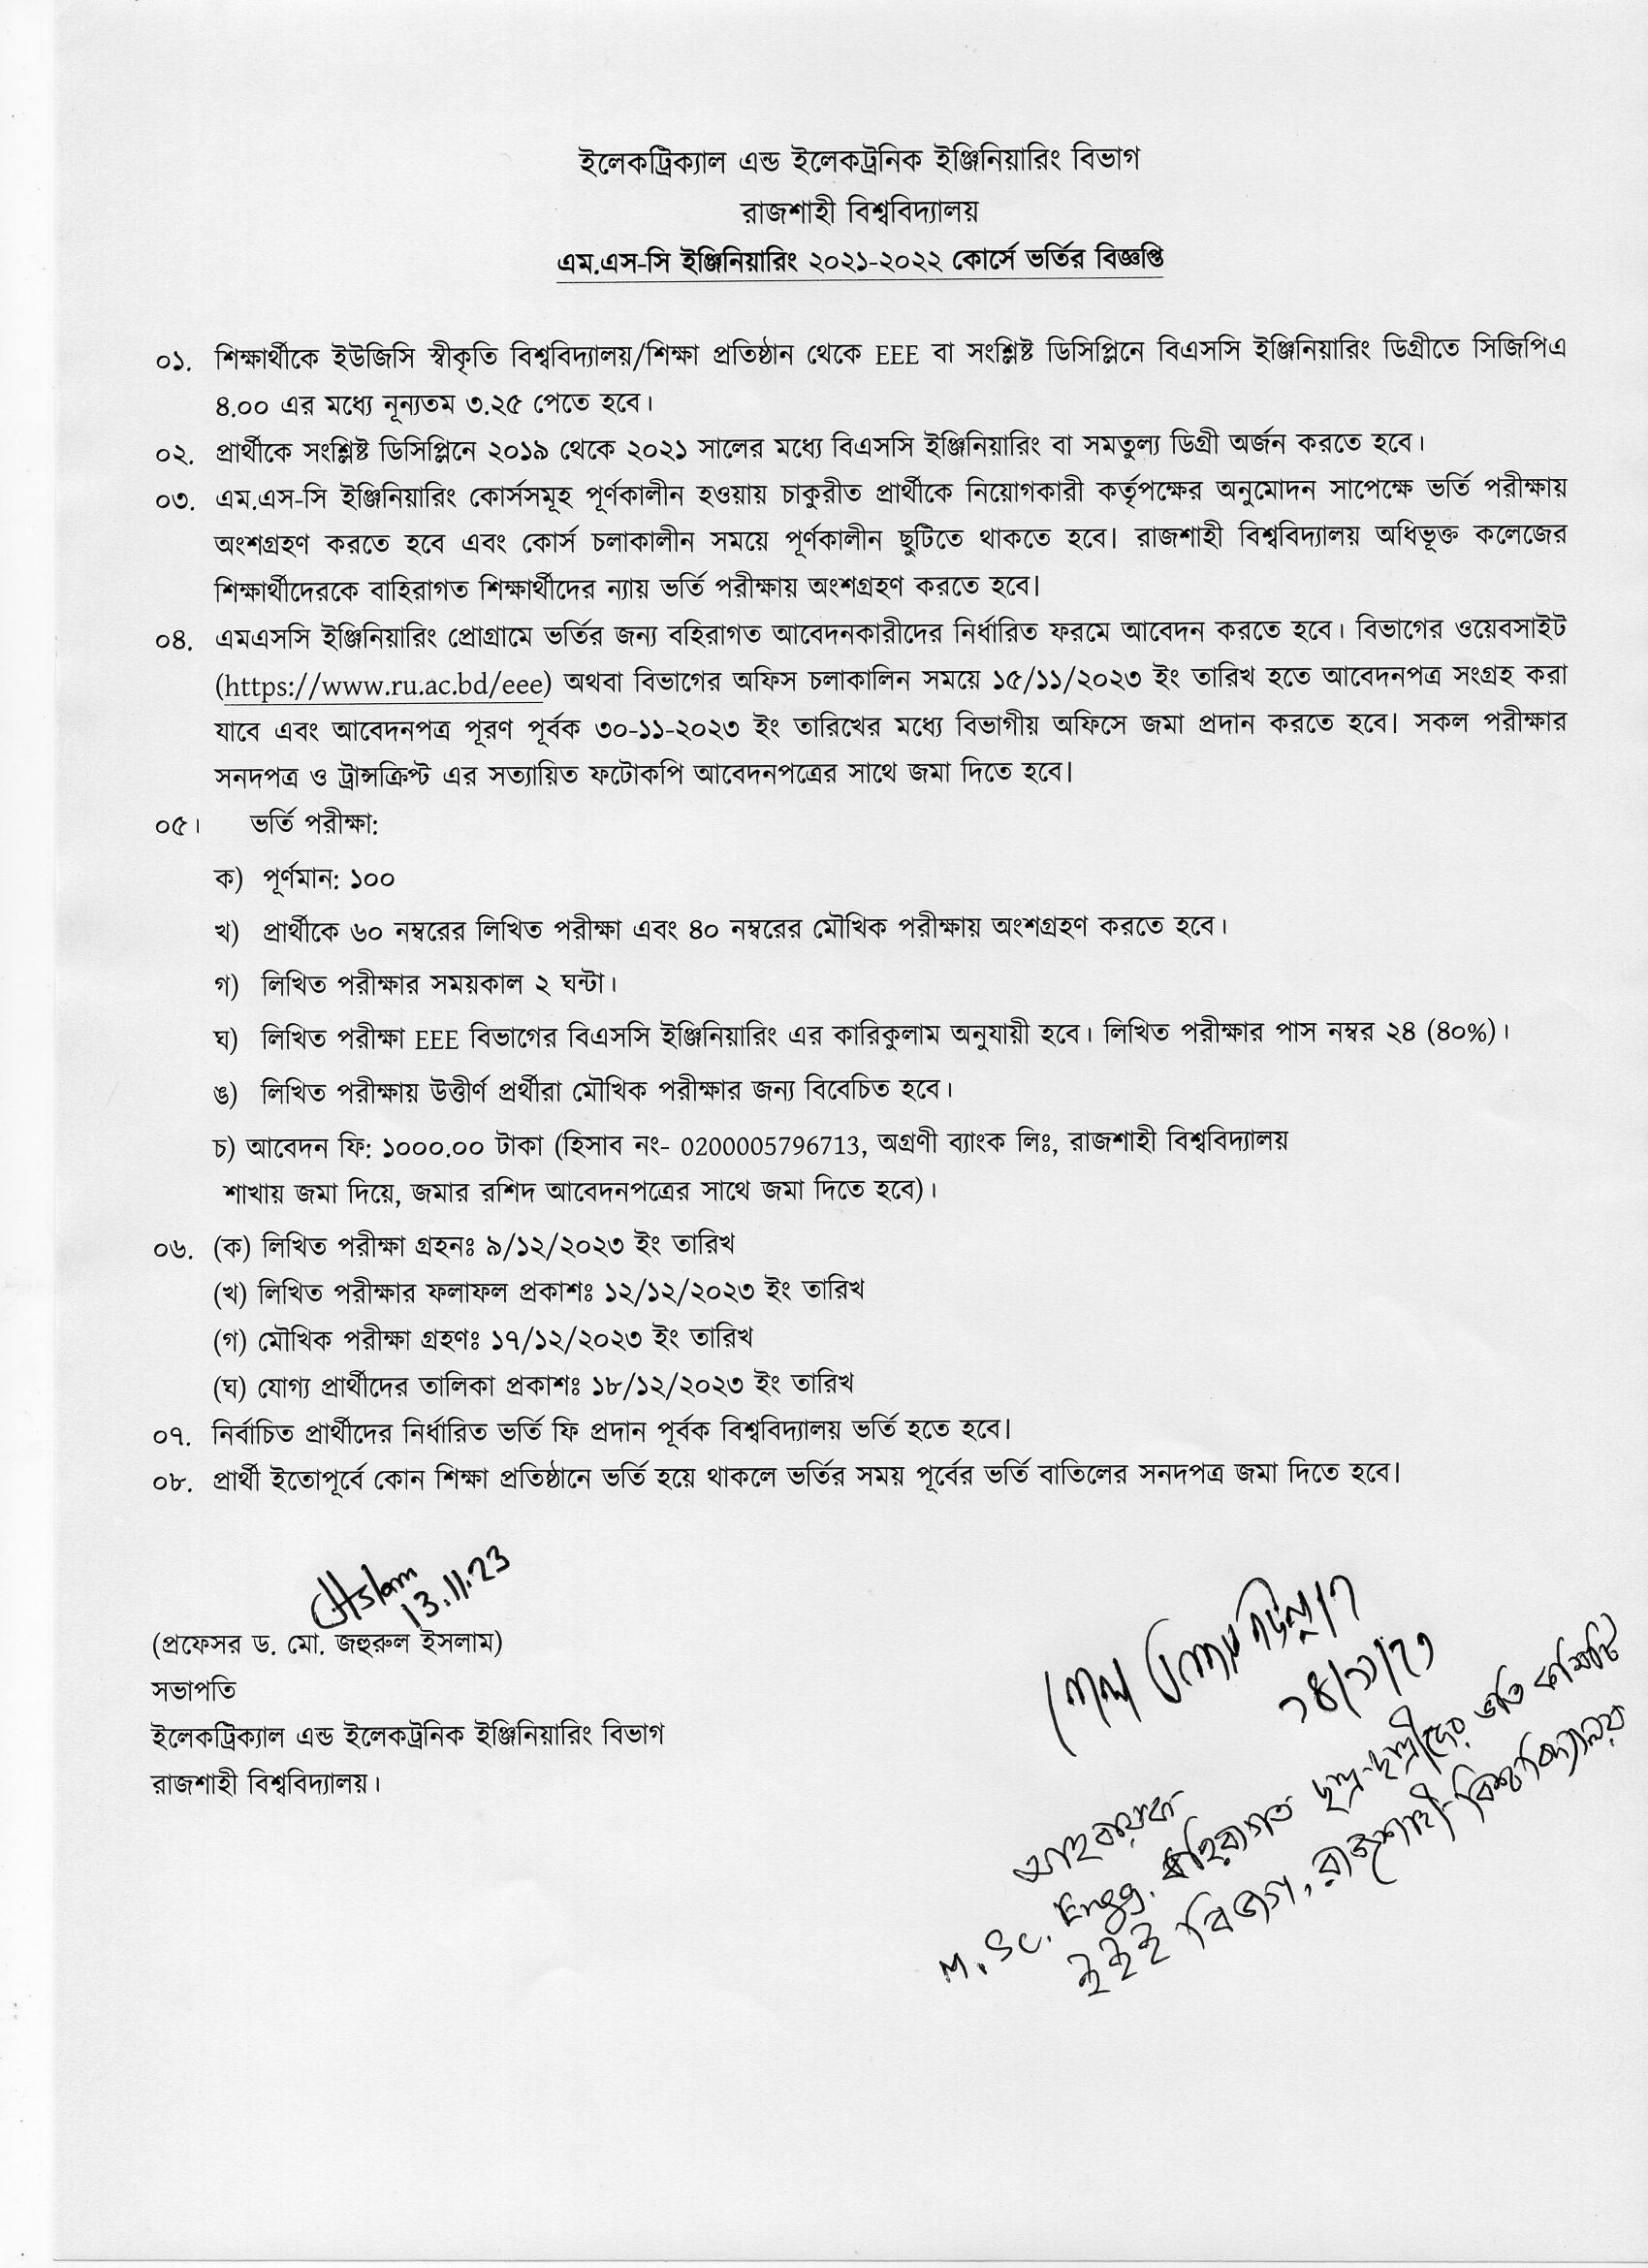 ইলেকট্রিক্যাল এন্ড ইলেকট্রনিক ইঞ্জিনিয়ারিং বিভাগ
রাজশাহী বিশ্ববিদ্যালয়
এম.এস-সি ইঞ্জিনিয়ারিং ২০২১-২০২২ কোর্সে ভর্তির বিজ্ঞপ্তি
০১. শিক্ষার্থীকে ইউজিসি স্বীকৃতি বিশ্ববিদ্যালয়/শিক্ষা প্রতিষ্ঠান থেকে EEE বা সংশ্লিষ্ট ডিসিপ্লিনে বিএসসি ইঞ্জিনিয়ারিং ডিগ্রীতে সিজিপিএ
৪.০০ এর মধ্যে নূন্যতম ৩.২৫ পেতে হবে।
০২. প্রার্থীকে সংশ্লিষ্ট ডিসিপ্লিনে ২০১৯ থেকে ২০২১ সালের মধ্যে বিএসসি ইঞ্জিনিয়ারিং বা সমতুল্য ডিগ্রী অর্জন করতে হবে।
০৩. এম.এস-সি ইঞ্জিনিয়ারিং কোর্সসমূহ পূর্ণকালীন হওয়ায় চাকুরীত প্রার্থীকে নিয়োগকারী কর্তৃপক্ষের অনুমোদন সাপেক্ষে ভর্তি পরীক্ষায়
অংশগ্রহণ করতে হবে এবং কোর্স চলাকালীন সময়ে পূর্ণকালীন ছুটিতে থাকতে হবে। রাজশাহী বিশ্ববিদ্যালয় অধিভূক্ত কলেজের
শিক্ষার্থীদেরকে বাহিরাগত শিক্ষার্থীদের ন্যায় ভর্তি পরীক্ষায় অংশগ্রহণ করতে হবে।
০৪. এমএসসি ইঞ্জিনিয়ারিং প্রোগ্রামে ভর্তির জন্য বহিরাগত আবেদনকারীদের নির্ধারিত ফরমে আবেদন করতে হবে। বিভাগের ওয়েবসাইট
(https://www.ru.ac.bd/eee) অথবা বিভাগের অফিস চলাকালিন সময়ে ১৫/১১/২০২৩ ইং তারিখ হতে আবেদনপত্র সংগ্রহ করা
যাবে এবং আবেদনপত্র পূরণ পূর্বক ৩০-১১-২০২৩ ইং তারিখের মধ্যে বিভাগীয় অফিসে জমা প্রদান করতে হবে। সকল পরীক্ষার
সনদপত্র ও ট্রান্সক্রিপ্ট এর সত্যায়িত ফটোকপি আবেদনপত্রের সাথে জমা দিতে হবে।
০৫। ভর্তি পরীক্ষা:
ক) পূর্ণমান: ১০০
খ) প্রার্থীকে ৬০ নম্বরের লিখিত পরীক্ষা এবং ৪০ নম্বরের মৌখিক পরীক্ষায় অংশগ্রহণ করতে হবে।
গ) লিখিত পরীক্ষার সময়কাল ২ ঘন্টা।
ঘ) লিখিত পরীক্ষা EEE বিভাগের বিএসসি ইঞ্জিনিয়ারিং এর কারিকুলাম অনুযায়ী হবে। লিখিত পরীক্ষার পাস নম্বর ২৪ (৪০%)।
ঙ) লিখিত পরীক্ষায় উত্তীর্ণ প্রর্থীরা মৌখিক পরীক্ষার জন্য বিবেচিত হবে।
চ) আবেদন ফি: ১০০০.০০ টাকা (হিসাব নং- 0200005796713, অগ্রণী ব্যাংক লিঃ, রাজশাহী বিশ্ববিদ্যালয়
শাখায় জমা দিয়ে, জমার রশিদ আবেদনপত্রের সাথে জমা দিতে হবে)।
০৬. (ক) লিখিত পরীক্ষা গ্রহনঃ ৯/১২/২০২৩ ইং তারিখ
(খ) লিখিত পরীক্ষার ফলাফল প্রকাশঃ ১২/১২/২০২৩ ইং তারিখ
(গ) মৌখিক পরীক্ষা গ্রহণঃ ১৭/১২/২০২৩ ইং তারিখ
(ঘ) যোগ্য প্রার্থীদের তালিকা প্রকাশঃ ১৮/১২/২০২৩ ইং তারিখ
০৭. নির্বাচিত প্রার্থীদের নির্ধারিত ভর্তি ফি প্রদান পূর্বক বিশ্ববিদ্যালয় ভর্তি হতে হবে।
০৮. প্রার্থী ইতোপূর্বে কোন শিক্ষা প্রতিষ্ঠানে ভর্তি হয়ে থাকলে ভর্তির সময় পূর্বের ভর্তি বাতিলের সনদপত্র জমা দিতে হবে।
13.11.23
(প্রফেসর ড. মো. জহুরুল ইসলাম)
সভাপতি
ইলেকট্রিক্যাল এন্ড ইলেকট্রনিক ইঞ্জিনিয়ারিং বিভাগ
রাজশাহী বিশ্ববিদ্যালয়।
আহবায়ক
M.Sc. Engg. বহিরাগত ছাত্র-ছাত্রীদের ভর্তি কমিটি
ইইই বিভাগ, রাজশাহী বিশ্ববিদ্যালয়